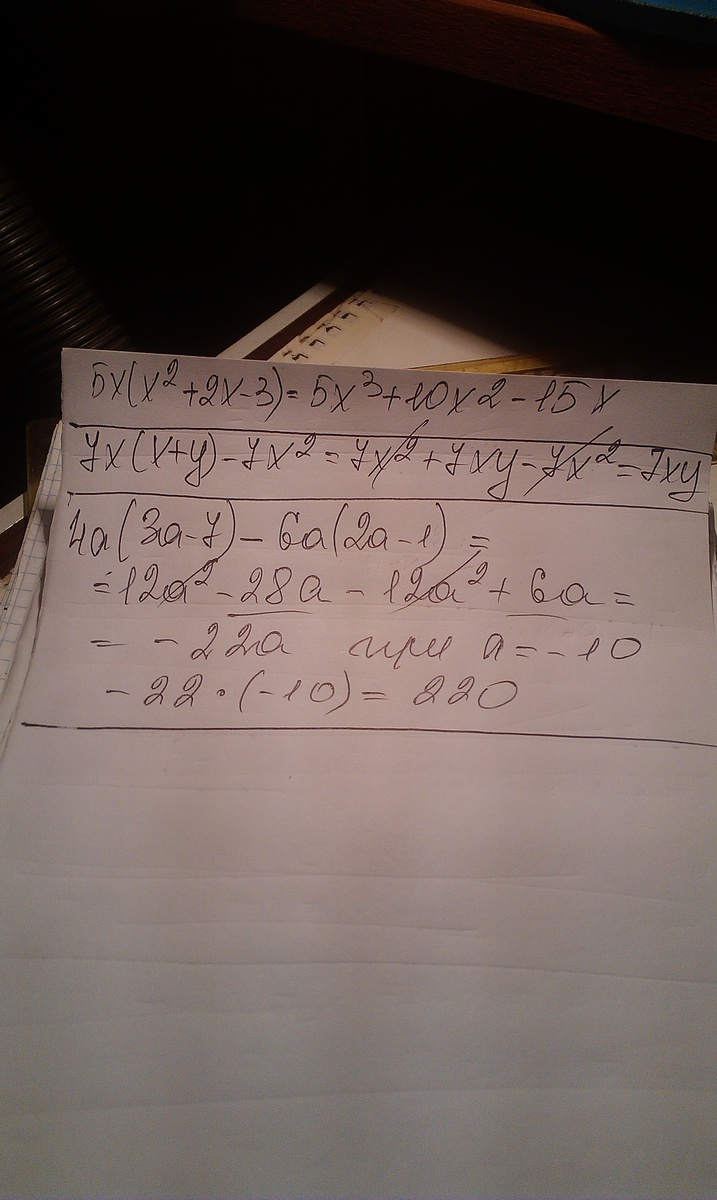 5x(x²+2x-3)=5x³+10x2-15x
7x(x+y)-7x²=7x²+7xy-7x²=7xy
4a(3a-7)-6a(2a-1)=
=12a²-28a-12a²+6a=
= -22a при a=-10
-22·(-10)=220